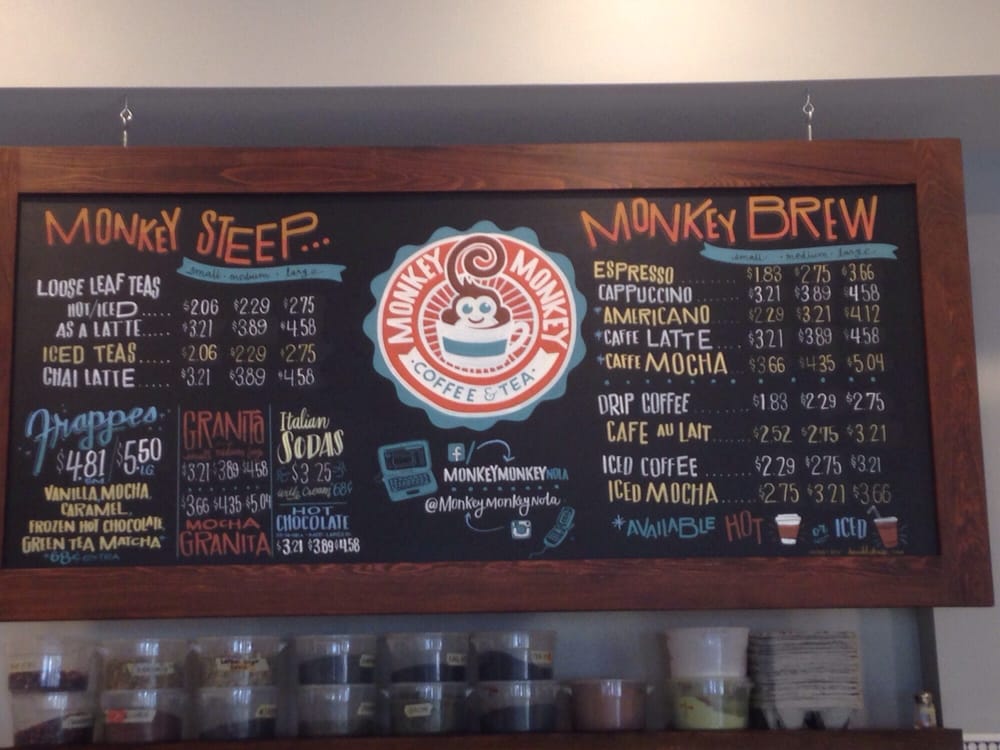 MONKEY STEEP...
small · medium · large
LOOSE LEAF TEAS
HOT/ICED..... $2.06 $2.29 $2.75
AS A LATTE..... $3.21 $3.89 $4.58
ICED TEAS..... $2.06 $2.29 $2.75
CHAI LATTE..... $3.21 $3.89 $4.58
Frappes
$4.81 SM / $5.50 LG
VANILLA, MOCHA,
CARAMEL,
FROZEN HOT CHOCOLATE,
GREEN TEA MATCHA*
*68¢ EXTRA
GRANITA
small medium large
$3.21 $3.89 $4.58
$3.66 $4.35 $5.04
MOCHA
GRANITA
Italian
SODAS
$3.25
add cream 68¢
HOT
CHOCOLATE
$3.21 $3.89 $4.58
MONKEY MONKEY
COFFEE & TEA
f/
MONKEYMONKEYNOLA
@Monkeymonkeynola
MONKEY BREW
small · medium · large
ESPRESSO ........ $1.83 $2.75 $3.66
CAPPUCCINO ........ $3.21 $3.89 $4.58
*AMERICANO ....... $2.29 $3.21 $4.12
*CAFFE LATTE ..... $3.21 $3.89 $4.58
*CAFFE MOCHA ... $3.66 $4.35 $5.04
DRIP COFFEE ....... $1.83 $2.29 $2.75
CAFE AU LAIT ..... $2.52 $2.75 $3.21
ICED COFFEE ....... $2.29 $2.75 $3.21
ICED MOCHA ..... $2.75 $3.21 $3.66
*AVAILABLE HOT or ICED